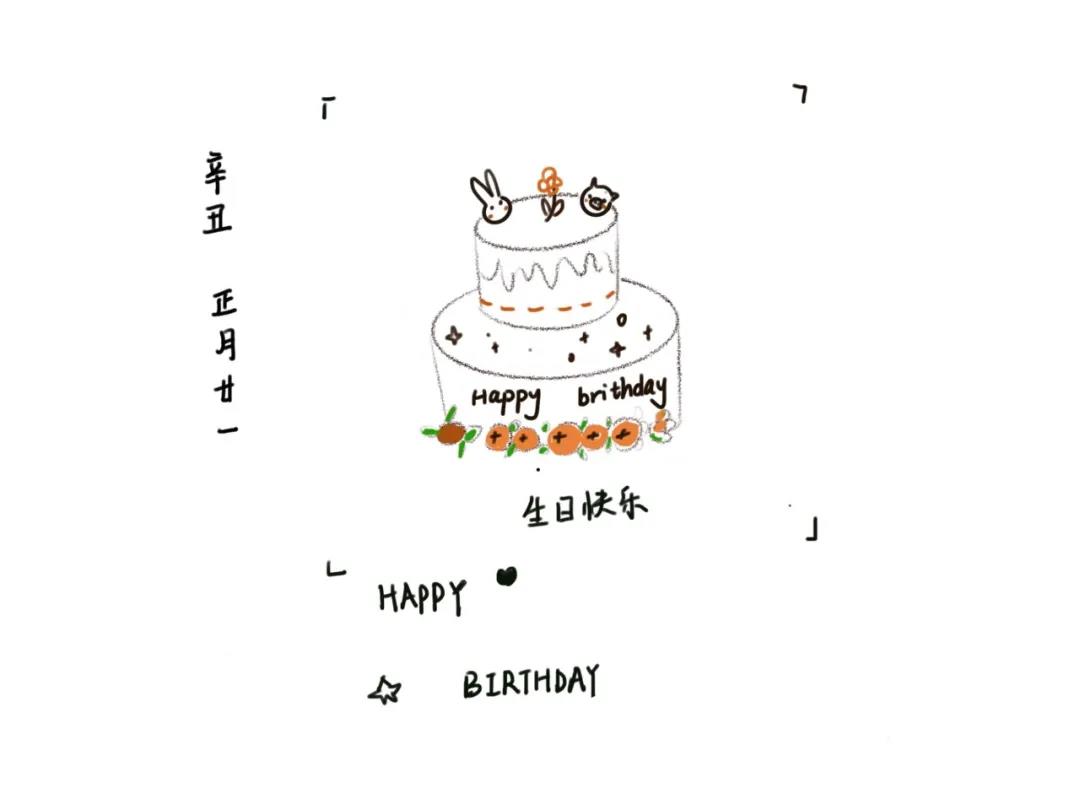 辛丑 正月廿一
Happy brithday
生日快乐
HAPPY
BIRTHDAY